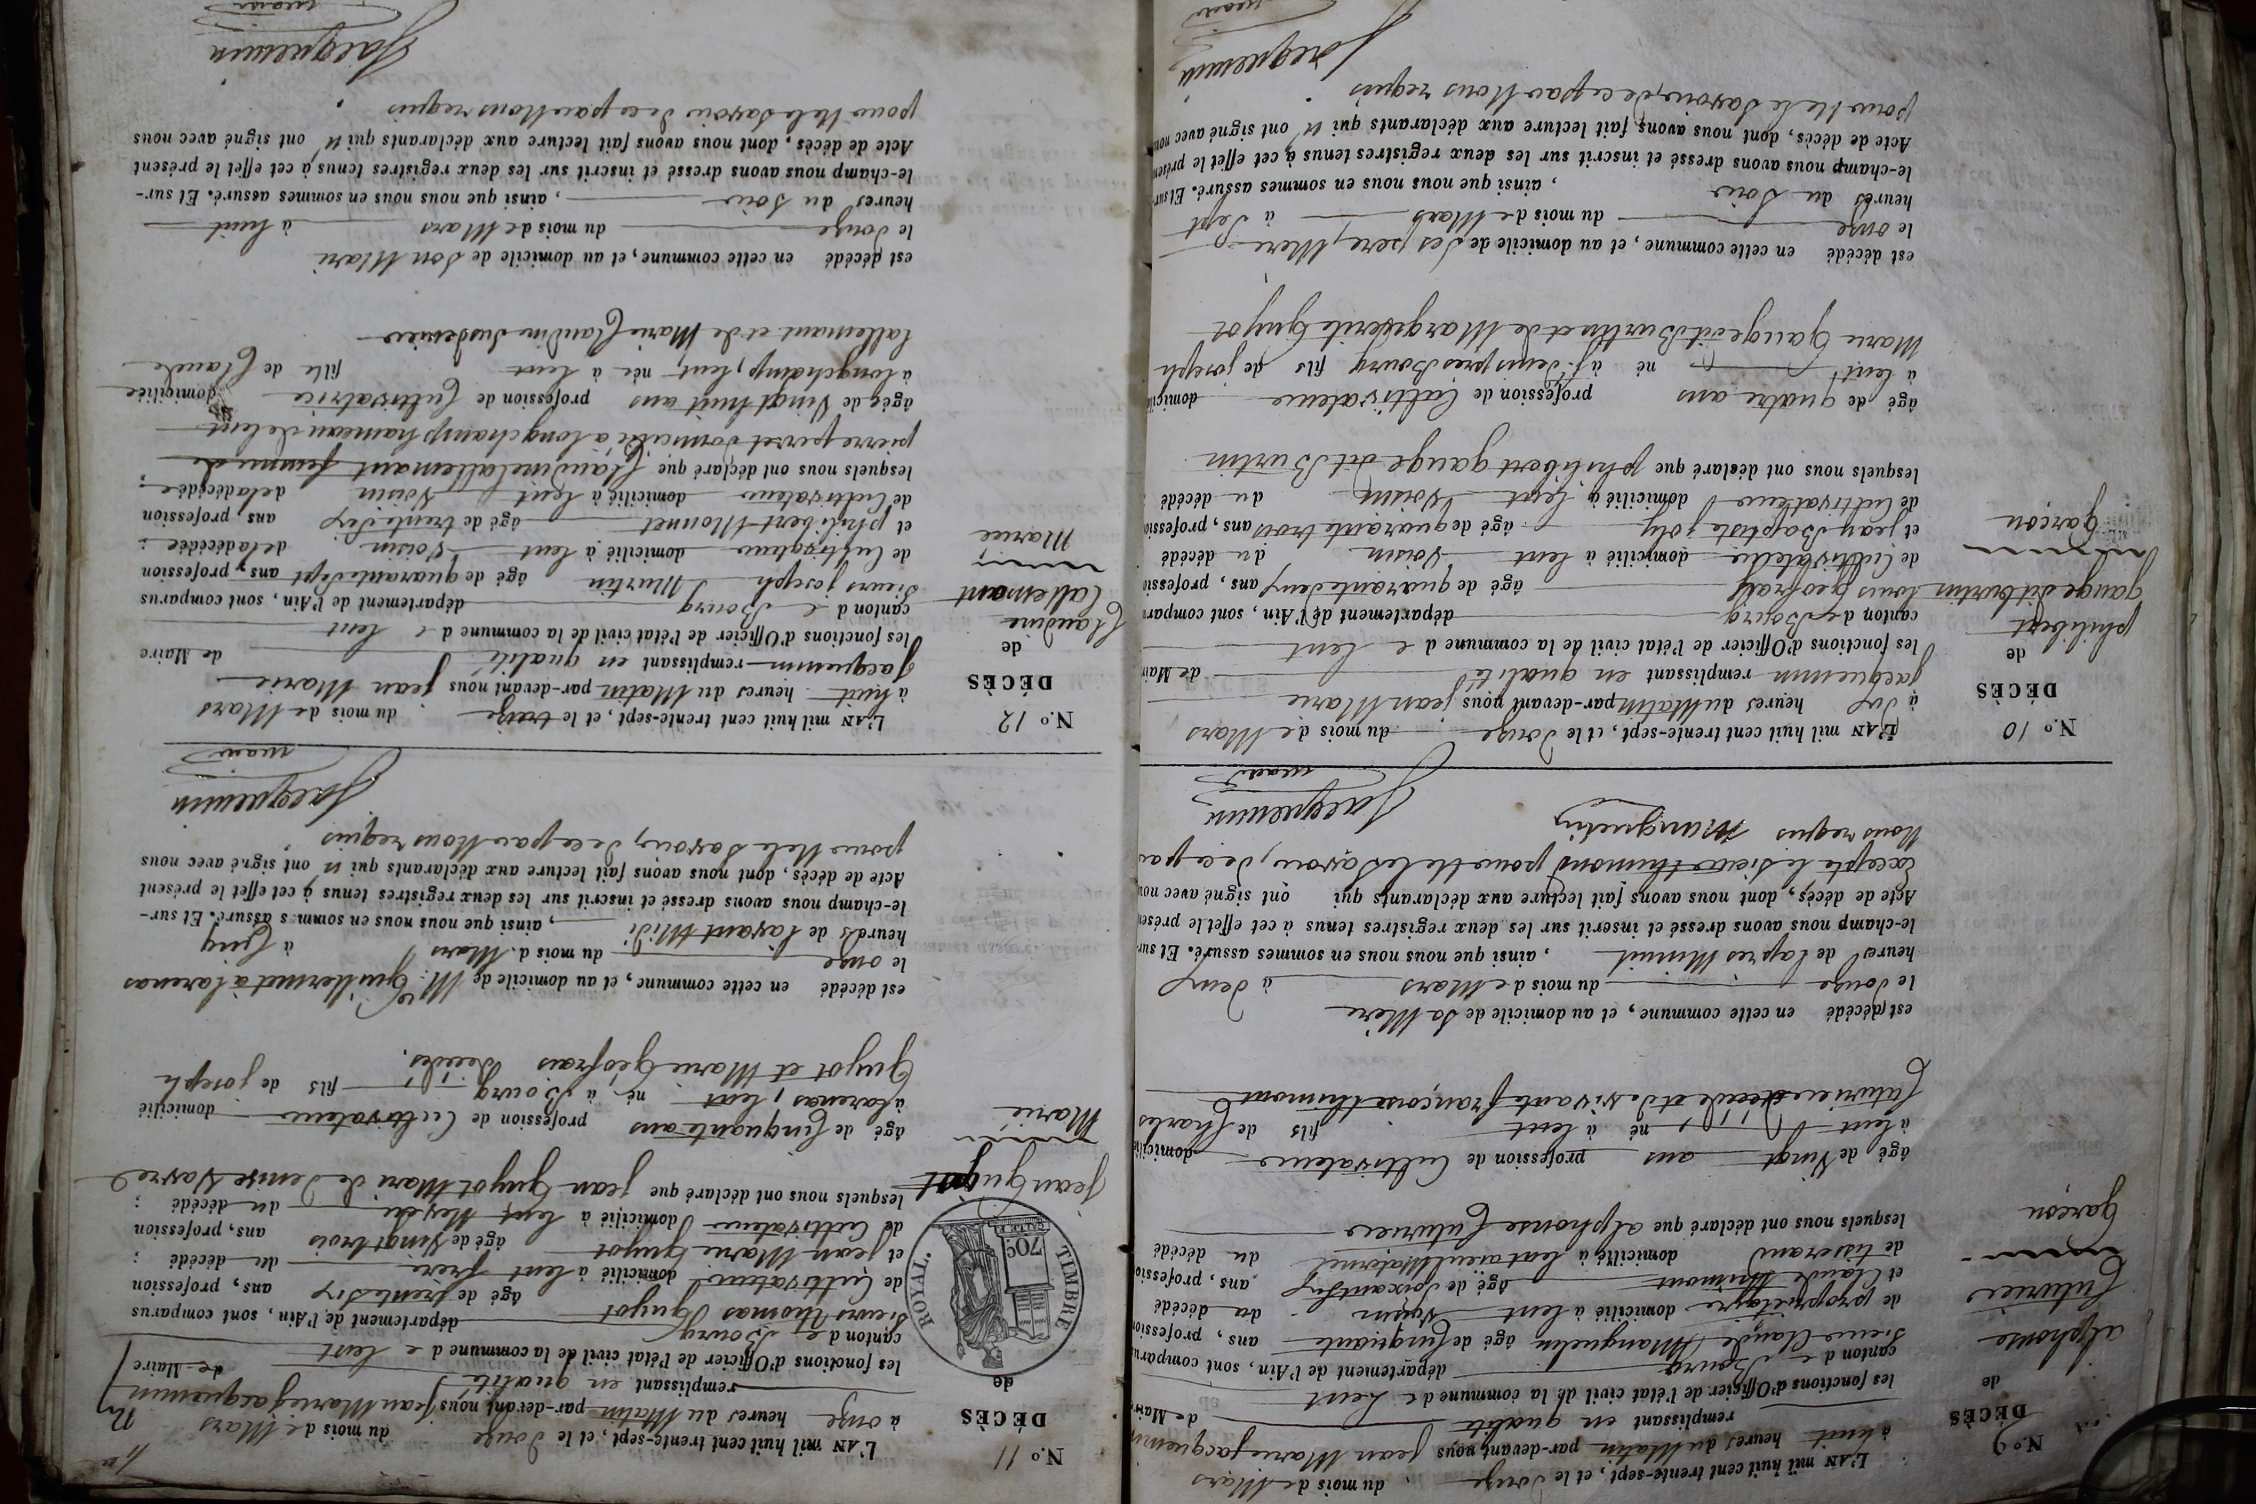 N.º 9
DÉCÈS
de
alphonse
Cuturier
Garçon
L'AN mil huit cent trente-sept, et le Douze du mois de Mars
à huit heures du Matin par-devant nous Jean Marie Jacquemin
remplissant en qualité de Maire
les fonctions d'Officier de l'état civil de la commune de Lent
canton de Bourg département de l'Ain, sont comparus
Sieurs Claude Manguelin âgé de Cinquante ans, profession
de propriétaire domicilié à Lent Voisin du décédé
et Claude thimont âgé de Soixante ans, profession
de tisserand domicilié à Lent du décédé
lesquels nous ont déclaré que alphonse Cuturier
âgé de Vingt ans profession de Cultivateur domicilié
à Lent né à Lent fils de Charles
Cuturier décédé et de vivante françoise thimont
est décédé en cette commune, et au domicile de sa Mère
le douze du mois de Mars à deux
heures de l'après Minuit, ainsi que nous nous en sommes assuré. Et sur-
le-champ nous avons dressé et inscrit sur les deux registres tenus à cet effet le présent
Acte de décès, dont nous avons fait lecture aux déclarants qui ont signé avec nous
Excepté le Sieur thimond pour ne le Savoir, de ce par
Nous requis Manguelin
Jacquemin
maire
N.º 10
DÉCÈS
de
philibert
gauge dit burtin
Garçon
L'AN mil huit cent trente-sept, et le Douze du mois de Mars
à dix heures du Matin par-devant nous jean Marie
jacquemin remplissant en qualité de Maire
les fonctions d'Officier de l'état civil de la commune de Lent
canton de Bourg département de l'Ain, sont comparus
Sieurs Louis Geofrais âgé de quarante deux ans, profession
de Cultivateur domicilié à Lent Voisin du décédé
et jean Baptiste joly âgé de quarante trois ans, profession
de Cultivateur domicilié à Lent Voisin du décédé
lesquels nous ont déclaré que philibert gauge dit Burtin
âgé de quatre ans profession de Cultivateur domicilié
à Lent né à St. Denis près Bourg fils de joseph
Marie Gauge dit Burtin et de Marguerite Guyot
est décédé en cette commune, et au domicile de Ses père, Mère
le onze du mois de Mars à Sept
heures du Soir, ainsi que nous nous en sommes assuré. Et sur-
le-champ nous avons dressé et inscrit sur les deux registres tenus à cet effet le présent
Acte de décès, dont nous avons fait lecture aux déclarants qui n' ont signé avec nous
pour Ne le Savoir, de ce par Nous requis
Jacquemin
maire
N.º 11
DÉCÈS
de
TIMBRE ROYAL.
70c
Jean Guyot
Marié
L'AN mil huit cent trente-sept, et le Douze du mois de Mars
à onze heures du Matin par-devant nous Jean Marie Jacquemin
remplissant en qualité de Maire
les fonctions d'Officier de l'état civil de la commune de Lent
canton de Bourg département de l'Ain, sont comparus
Sieurs thomas Guyot âgé de trente Six ans, profession
de Cultivateur domicilié à Lent frère du décédé ;
et Jean Marie Guyot âgé de Vingt trois ans, profession
de Cultivateur domicilié à Lent Neveu du décédé ;
lesquels nous ont déclaré que jean Guyot Mari de Denise Vavre
âgé de Cinquante ans profession de Cultivateur domicilié
à Larenas, Lent né à Bourg fils de joseph
Guyot et Marie Géofrais Décédés.
est décédé en cette commune, et au domicile de Mr. Guillermet à Larenas
le onze du mois de Mars à Cinq
heures de l'avant Midi, ainsi que nous nous en sommes assuré. Et sur-
le-champ nous avons dressé et inscrit sur les deux registres tenus à cet effet le présent
Acte de décès, dont nous avons fait lecture aux déclarants qui n' ont signé avec nous
pour Ne le Savoir, de ce par Nous requis
Jacquemin
maire
N.º 12
DÉCÈS
de
Claudine
Lallemant
Mariée
L'AN mil huit cent trente-sept, et le treize du mois de Mars
à huit heures du Matin par-devant nous jean Marie
Jacquemin remplissant en qualité de Maire
les fonctions d'Officier de l'état civil de la commune de Lent
canton de Bourg département de l'Ain, sont comparus
Sieurs joseph Murtin âgé de quarante Sept ans, profession
de Cultivateur domicilié à Lent Voisin de la décédée ;
et philibert Monnet âgé de trente Six ans, profession
de Cultivateur domicilié à Lent Voisin de la décédée ;
lesquels nous ont déclaré que Claudine Lallemant femme de
pierre perret domicilié à longchamp hameau de Lent
âgée de Vingt huit ans profession de Cultivatrice domiciliée
à longchamp, Lent née à Lent fille de Claude
Lallemant et de Marie Claudine
est décédé en cette commune, et au domicile de Son Mari
le Douze du mois de Mars à huit
heures du Soir, ainsi que nous nous en sommes assuré. Et sur-
le-champ nous avons dressé et inscrit sur les deux registres tenus à cet effet le présent
Acte de décès, dont nous avons fait lecture aux déclarants qui n' ont signé avec nous
pour Ne le Savoir de ce par Nous requis
Jacquemin
maire